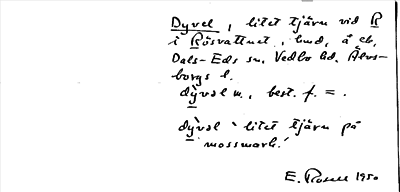 Dyvel, litet tjärn vid R
i Råsvattnet, hmd, å eb,
Dals-Eds sn, Vedbo hd, Älvs-
borgs l.
dỳvəl m., best. f. = .
dỳvəl 'litet tjärn på
mossmark.'
E. Rosell 1950